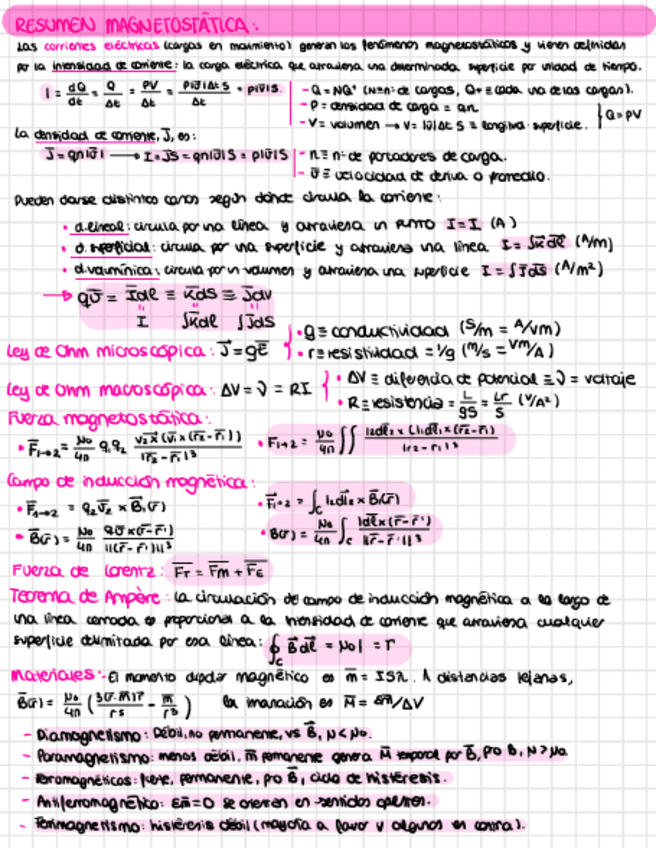 RESUMEN MAGNETOSTÁTICA:
Las corrientes eléctricas (cargas en movimiento) generan los fenómenos magnetostáticos y vienen definidas
por la intensidad de corriente: la carga eléctrica que atraviesa una determinada superficie por unidad de tiempo.
I = dQ/dt = Q/Δt = PV/Δt = P|v̄|Δt S/Δt = P|v̄|S
- Q = NQ⁺ (N≡nº de cargas, Q+≡cada una de las cargas).
- P = densidad de carga = qn
- V = volumen → V = |v̄|Δt S ≡ longitud · superficie.
} Q = PV
La densidad de corriente, J̄, es:
J̄ = qn|v̄| → I = JS = qn|v̄|S = P|v̄|S
- n ≡ nº de portadores de carga.
- v̄ ≡ velocidad de deriva o promedio.
Pueden darse distintos casos según dónde circula la corriente:
• d. lineal: circula por una línea y atraviesa un PUNTO I = I (A)
• d. superficial: circula por una superficie y atraviesa una línea I = ∫K̄dl̄ (A/m)
• d. volumínica: circula por un volumen y atraviesa una superficie I = ∫J̄ds̄ (A/m²)
→ qv̄ = Īdl ≡ K̄ds ≡ J̄dv
I ∫K̄dl ∫J̄ds
Ley de Ohm microscópica: J̄ = gĒ
• g ≡ conductividad (S/m = A/Vm)
• r ≡ resistividad = 1/g (m/s = Vm/A)
Ley de Ohm macroscópica: ΔV = V = RI
• ΔV ≡ diferencia de potencial ≡ V = voltaje
• R ≡ resistencia = L/gS = Lr/S (V/A²)
Fuerza magnetostática:
• F̄1→2 = μ0/4π q1 q2 v̄2 x (v̄1 x (r̄2 - r̄1))/|r̄2 - r̄1|³
• F1→2 = μ0/4π ∬ I2dl̄2 x (I1dl̄1 x (r̄2 - r̄1))/|r2 - r̄1|³
Campo de inducción magnética:
• F̄1→2 = q2 v̄2 x B̄1(r̄)
• F̄1→2 = ∫c I2dl̄2 x B̄(r̄)
• B̄(r̄) = μ0/4π qv̄ x (r̄ - r̄')/||(r̄ - r̄')||³
• B(r) = μ0/4π ∫c Idl̄ x (r̄ - r̄')/||r̄ - r̄'||³
Fuerza de Lorentz: F̄T = F̄M + F̄E
Teorema de Ampère: La circulación del campo de inducción magnética a lo largo de
una línea cerrada es proporcional a la intensidad de corriente que atraviesa cualquier
superficie delimitada por esa línea: ∮c B̄dl̄ = μ0I = Γ
Materiales:- El momento dipolar magnético es m̄ = ISn̄. A distancias lejanas,
B̄(r̄) = μ0/4π (3(r̄·m̄)r̄/r⁵ - m̄/r³) la imanación es M̄ = Σm̄/ΔV
- Diamagnetismo: Débil, no permanente, vs B̄, μ < μ0.
- Paramagnetismo: menos débil, m̄ permanente genera M̄ temporal por B̄, pro B, μ > μ0.
- Ferromagnéticos: fuerte, permanente, pro B̄, ciclo de histéresis.
- Antiferromagnético: Σm̄ = 0 se orientan en sentidos opuestos.
- Ferrimagnetismo: histéresis débil (mayoría a favor y algunos en contra).